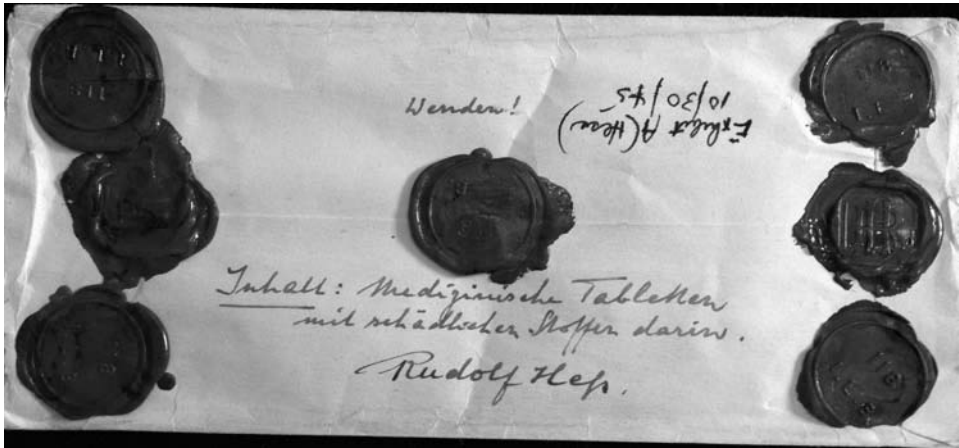 Wenden!
Exhibit A (Hess)
10/30/45
Inhalt: Medizinische Tabletten
mit schädlichen Stoffen darin.
Rudolf Heß.
HR